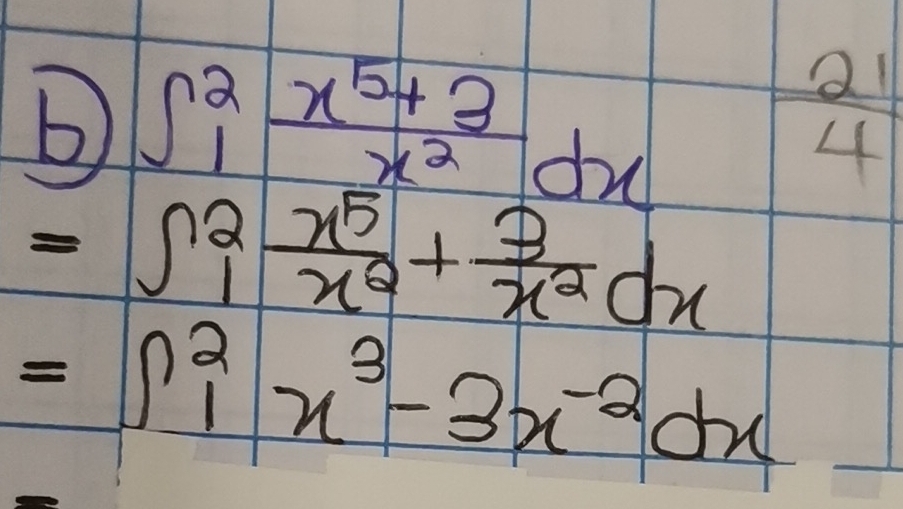 b) ∫₁² (x⁵ + 3)/x² dx
21/4
= ∫₁² x⁵/x² + 3/x² dx
= ∫₁² x³ - 3x⁻² dx
=